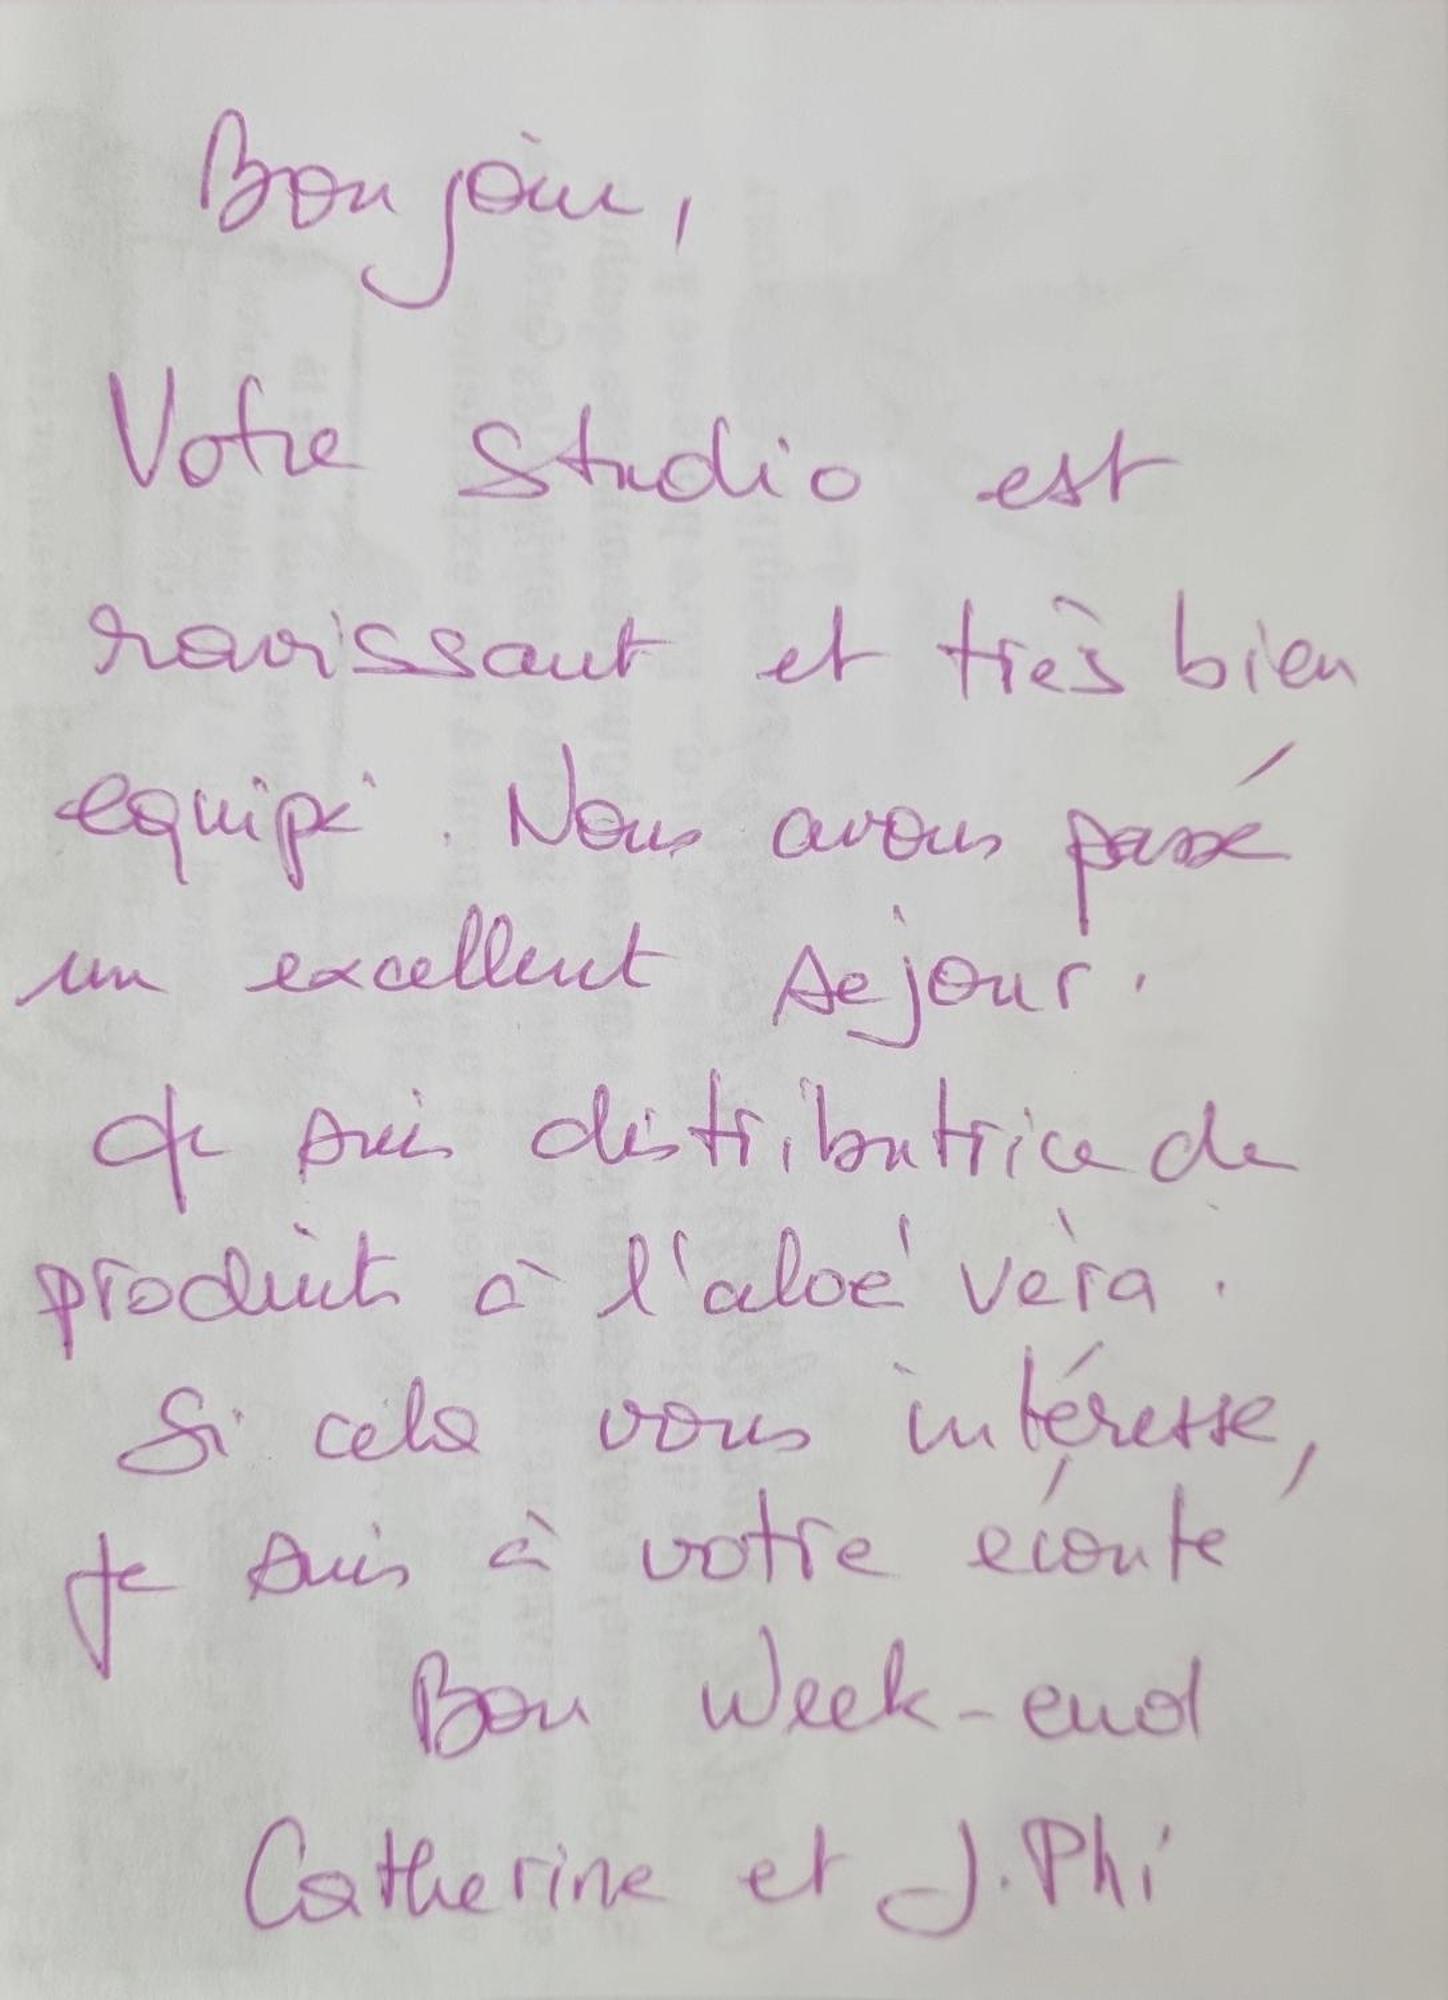 Bonjour,
Votre Studio est
ravissant et très bien
equipé. Nous avons passé
un excellent sejour.
Je suis distributrice de
produits à l'aloé véra.
Si cela vous intéresse,
je suis à votre écoute
Bon Week-end
Catherine et J.Phi